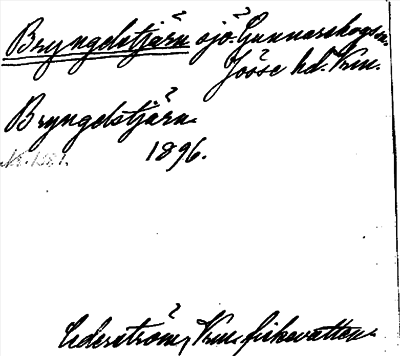 Bryngelstjärn sjö. Gunnarskogs sn.
Jösse hd. Vrm.
Bryngelstjärn.
1896.
Cederström, Vrm. fiskevatten.